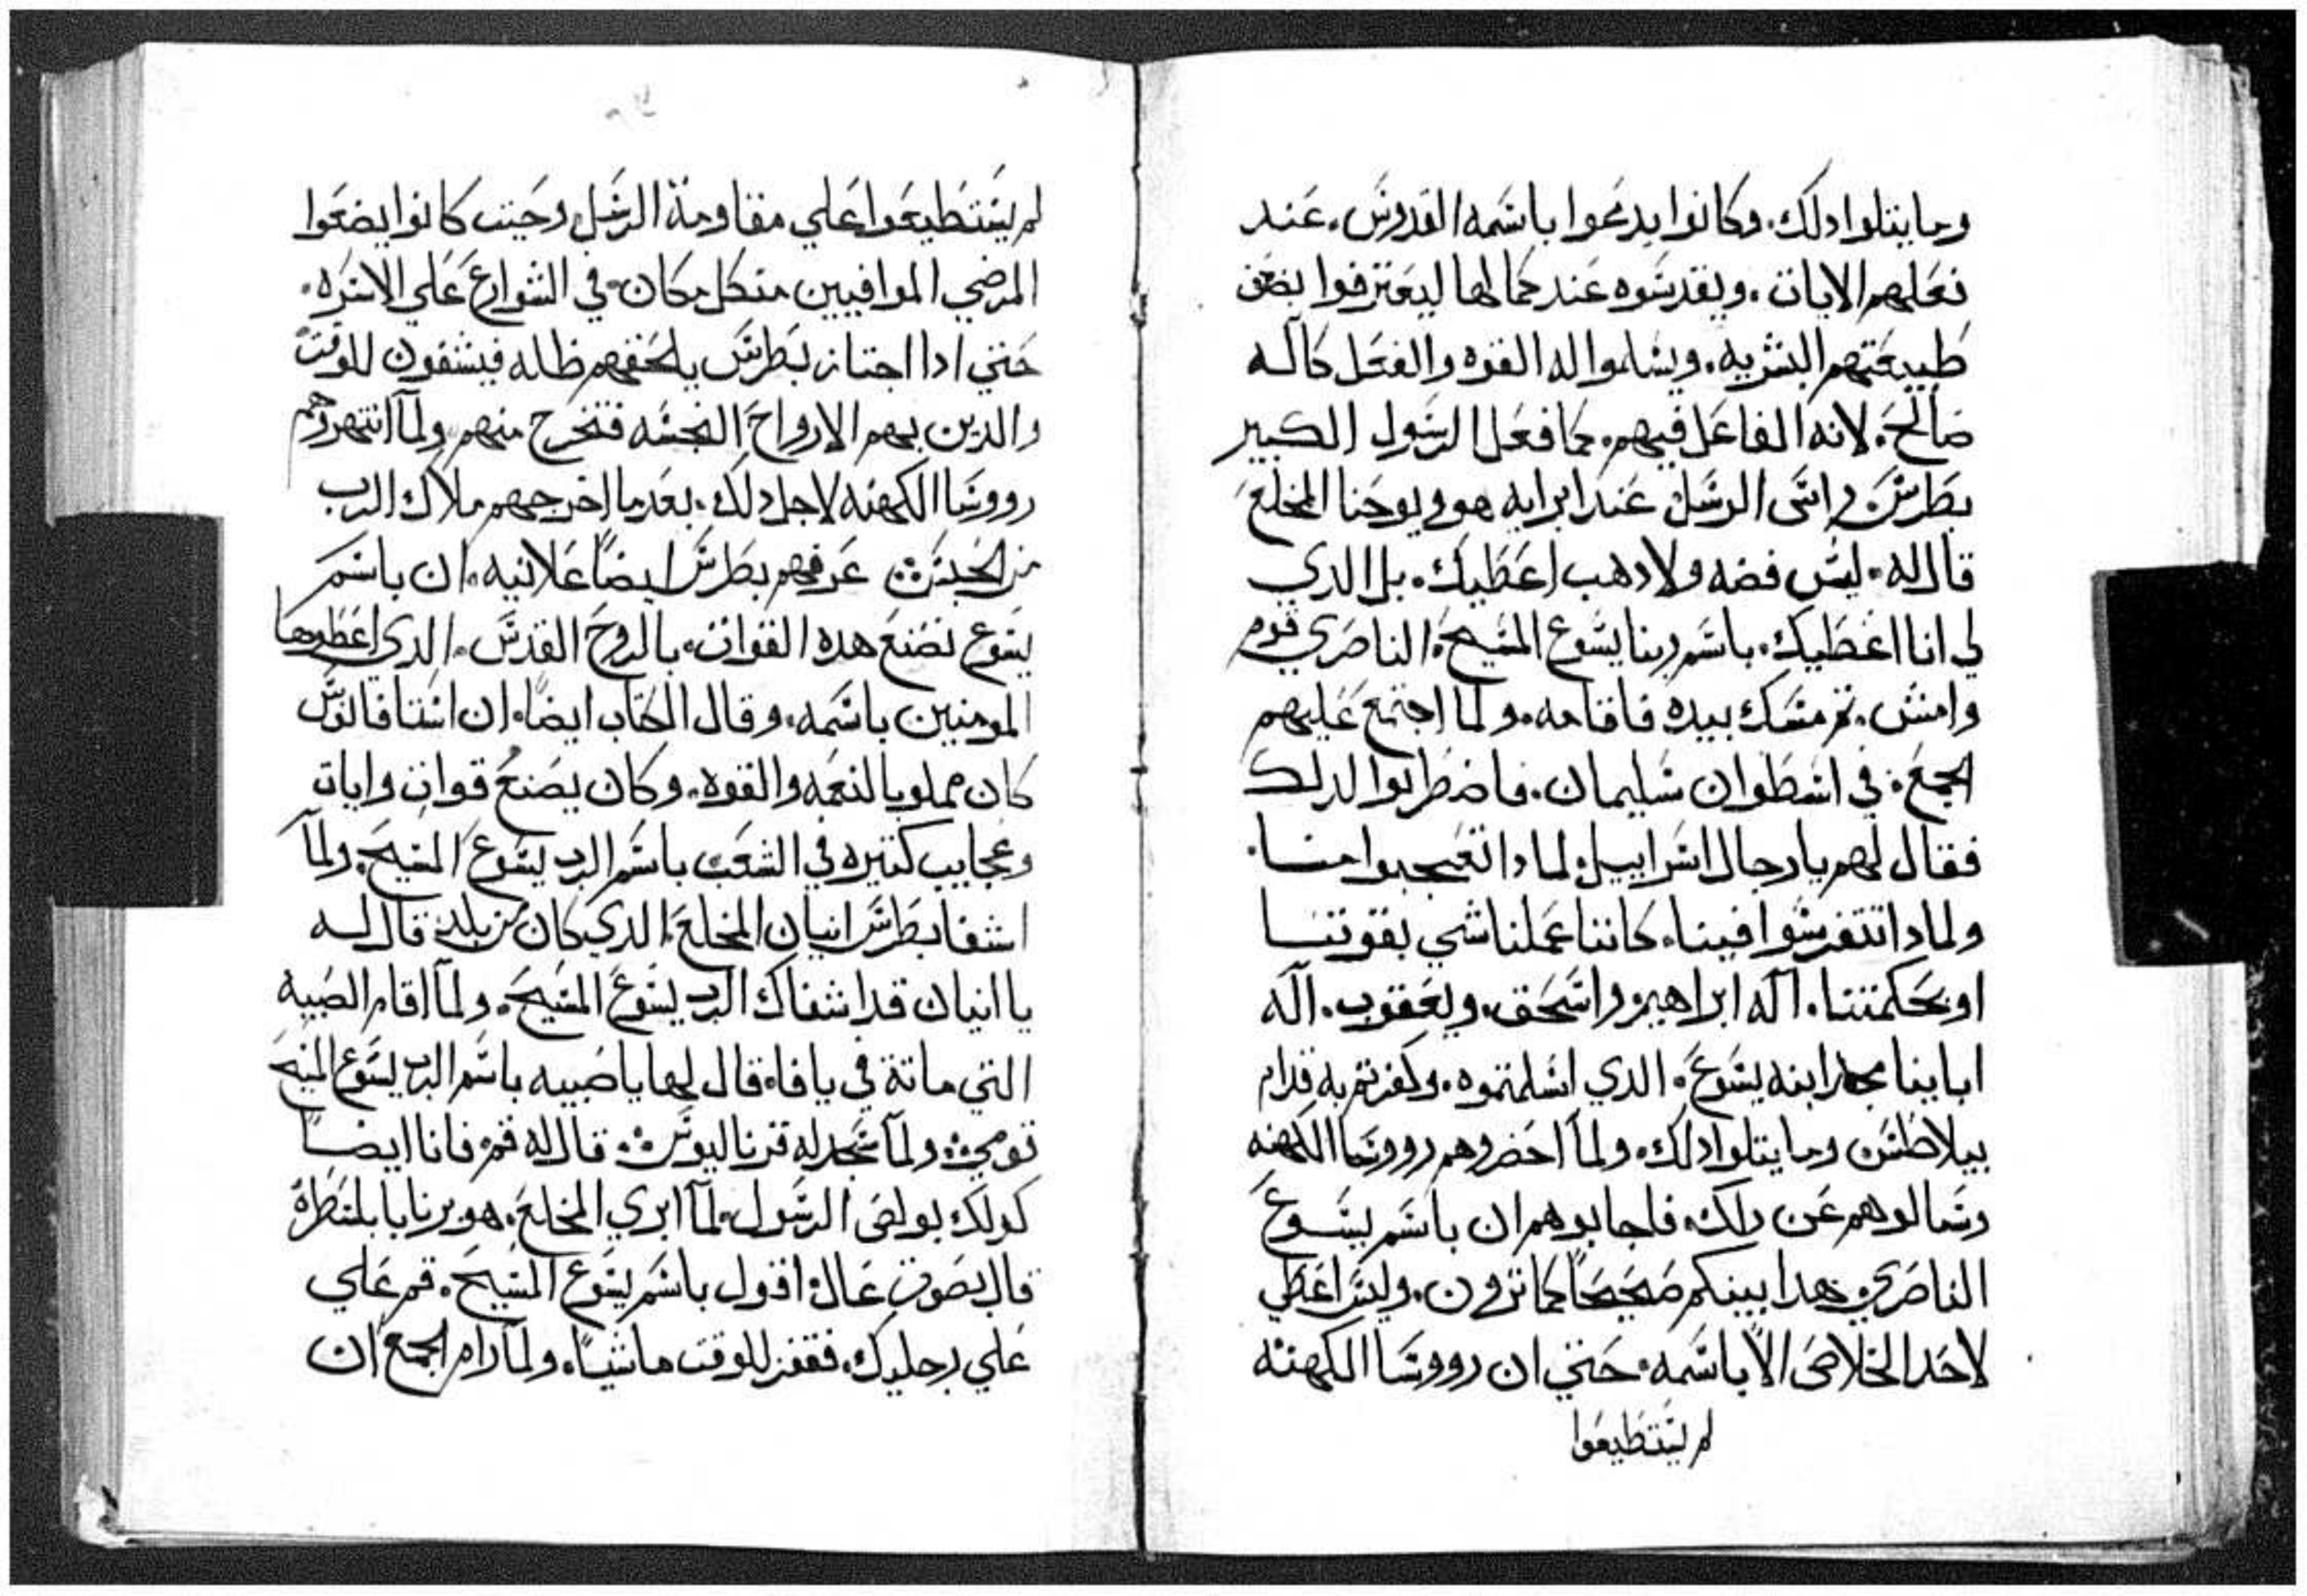 وما يتلوا دلك. وكانوا يدعوا باسمه القدوس. عند
فعلهم الايات. ويقدسوه عند كمالها ليعترفوا بضعف
طبيعتهم البشريه. ويسلموا له القوه والفعل كآله
صالح. لانه الفاعل فيهم. كما فعل الرسول الكبير
بطرس راس الرسل عند ابرايه هو ويوحنا المخلع
قال له. ليس فضه ولا دهب اعطيك. بل الدي
لي انا اعطيك. باسم ربنا يسوع المسيح. الناصري قوم
وامش. تم مسك بيده فاقامه. ولما اجتمع عليهم
الجمع. في اسطوان سليمان. فاضطربوا لدلك
فقال لهم يا رجال اسراييل. لمادا تتعجبوا منا.
ولمادا تتفرسوا فينا. كاننا عملنا شي بقوتنا
او بحكمتنا. آله ابراهيم واسحق. ويعقوب. آله
ابابينا مجد ابنه يسوع. الدي اسلمتموه. وكفرتم به قدام
بيلاطس وما يتلوا دلك. ولمآ احضروهم رووسا الكهنه
وسالوهم عن دلك. فاجابوهم ان باسم يسوع
الناصري هدا بينكم صحيحًا كما ترون. وليس اعطي
لاحد الخلاص الآ باسمه. حتي ان رووسا الكهنه
لم يستطيعوا
لم يستطيعوا علي مقاومة الرسل وحيت كانوا يضعوا
المرضي الموافيين من كل مكان. في الشوارع علي الاسره.
حتي ادا اجتاز بطرس يلحقهم ظله فيشفون للوقت
والدين بهم الارواح النجسه فتخرج منهم. ولمآ انتهروهم
رووسا الكهنه لاجل دلك. بعد ما اخرجهم ملاك الرب
من الحبس عرفهم بطرس ايضًا علانيه. ان باسم
يسوع نصنع هده القوات. بالروح القدس. الدي اعطوها
المومنين باسمه. وقال الكتاب ايضًا. ان استافانوس
كان مملو بالنعمه والقوه. وكان يصنع قوات وايات
وعجايب كتيره في الشعب باسم الرب يسوع المسيح. ولمآ
اشفا بطرس انيان المخلع. الدي كان من بلد. قال له
يا انيان قد اشفاك الرب يسوع المسيح. ولمآ اقام الصبيه
التي ماتة في يافا. قال لها يا صبيه باسم الرب يسوع المسيح
قومي. ولمآ سجد له قرناليوس. قال له قم. فانا ايضًا
كدلك بولص الرسول. لمآ ابري المخلع. هو برنابا بلسطرة
قال بصوت عال. اقول باسم يسوع المسيح. قم علي
علي رجليك. فقفز للوقت ماشيًا. ولمآ رام الجمع ان